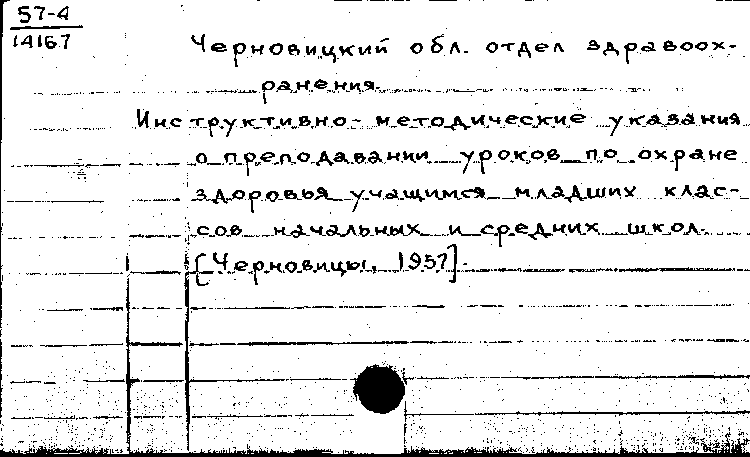 57-4
14167
Черновицкий обл. отдел здравоох-
ранения.
Инструктивно-методические указания
о преподавании уроков по охране
здоровья учащимся младших клас-
сов начальных и средних школ.
[Черновицы, 1957].